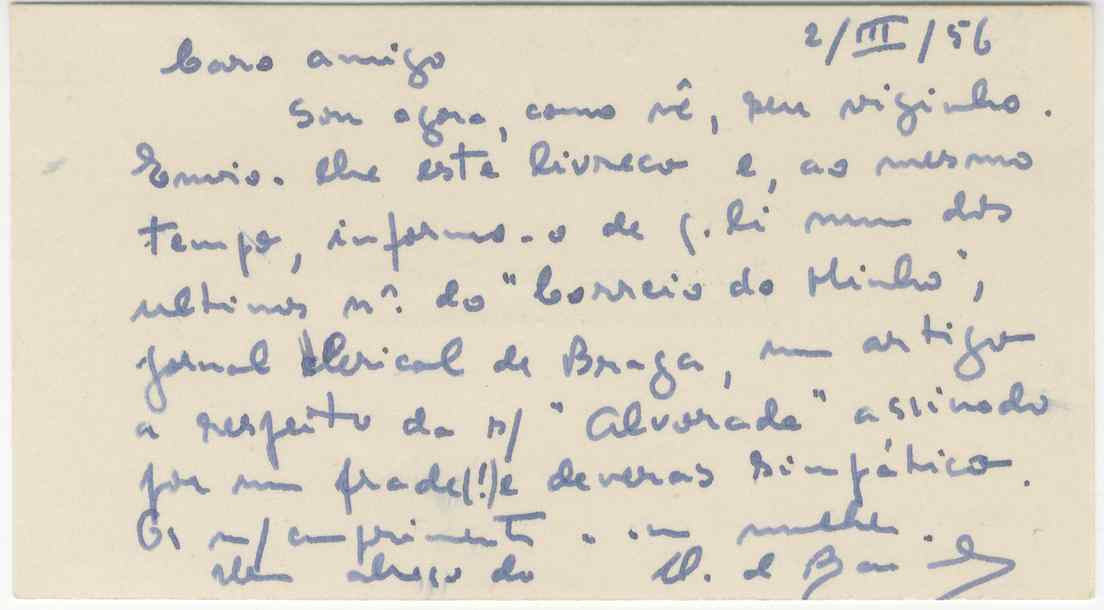 2/III/56
Caro amigo
Sou agora, como vê, seu viginho.
Envio-lhe este livreco e, ao mesmo
tempo, informo-o de q. li num dos
ultimos nº. do "Correio do Minho",
jornal clerical de Braga, um artigo
a respeito da s/ "Alvorada" assinado
por um frade(!) e deveras simpático.
Os m/ cumprimentos
abraço do